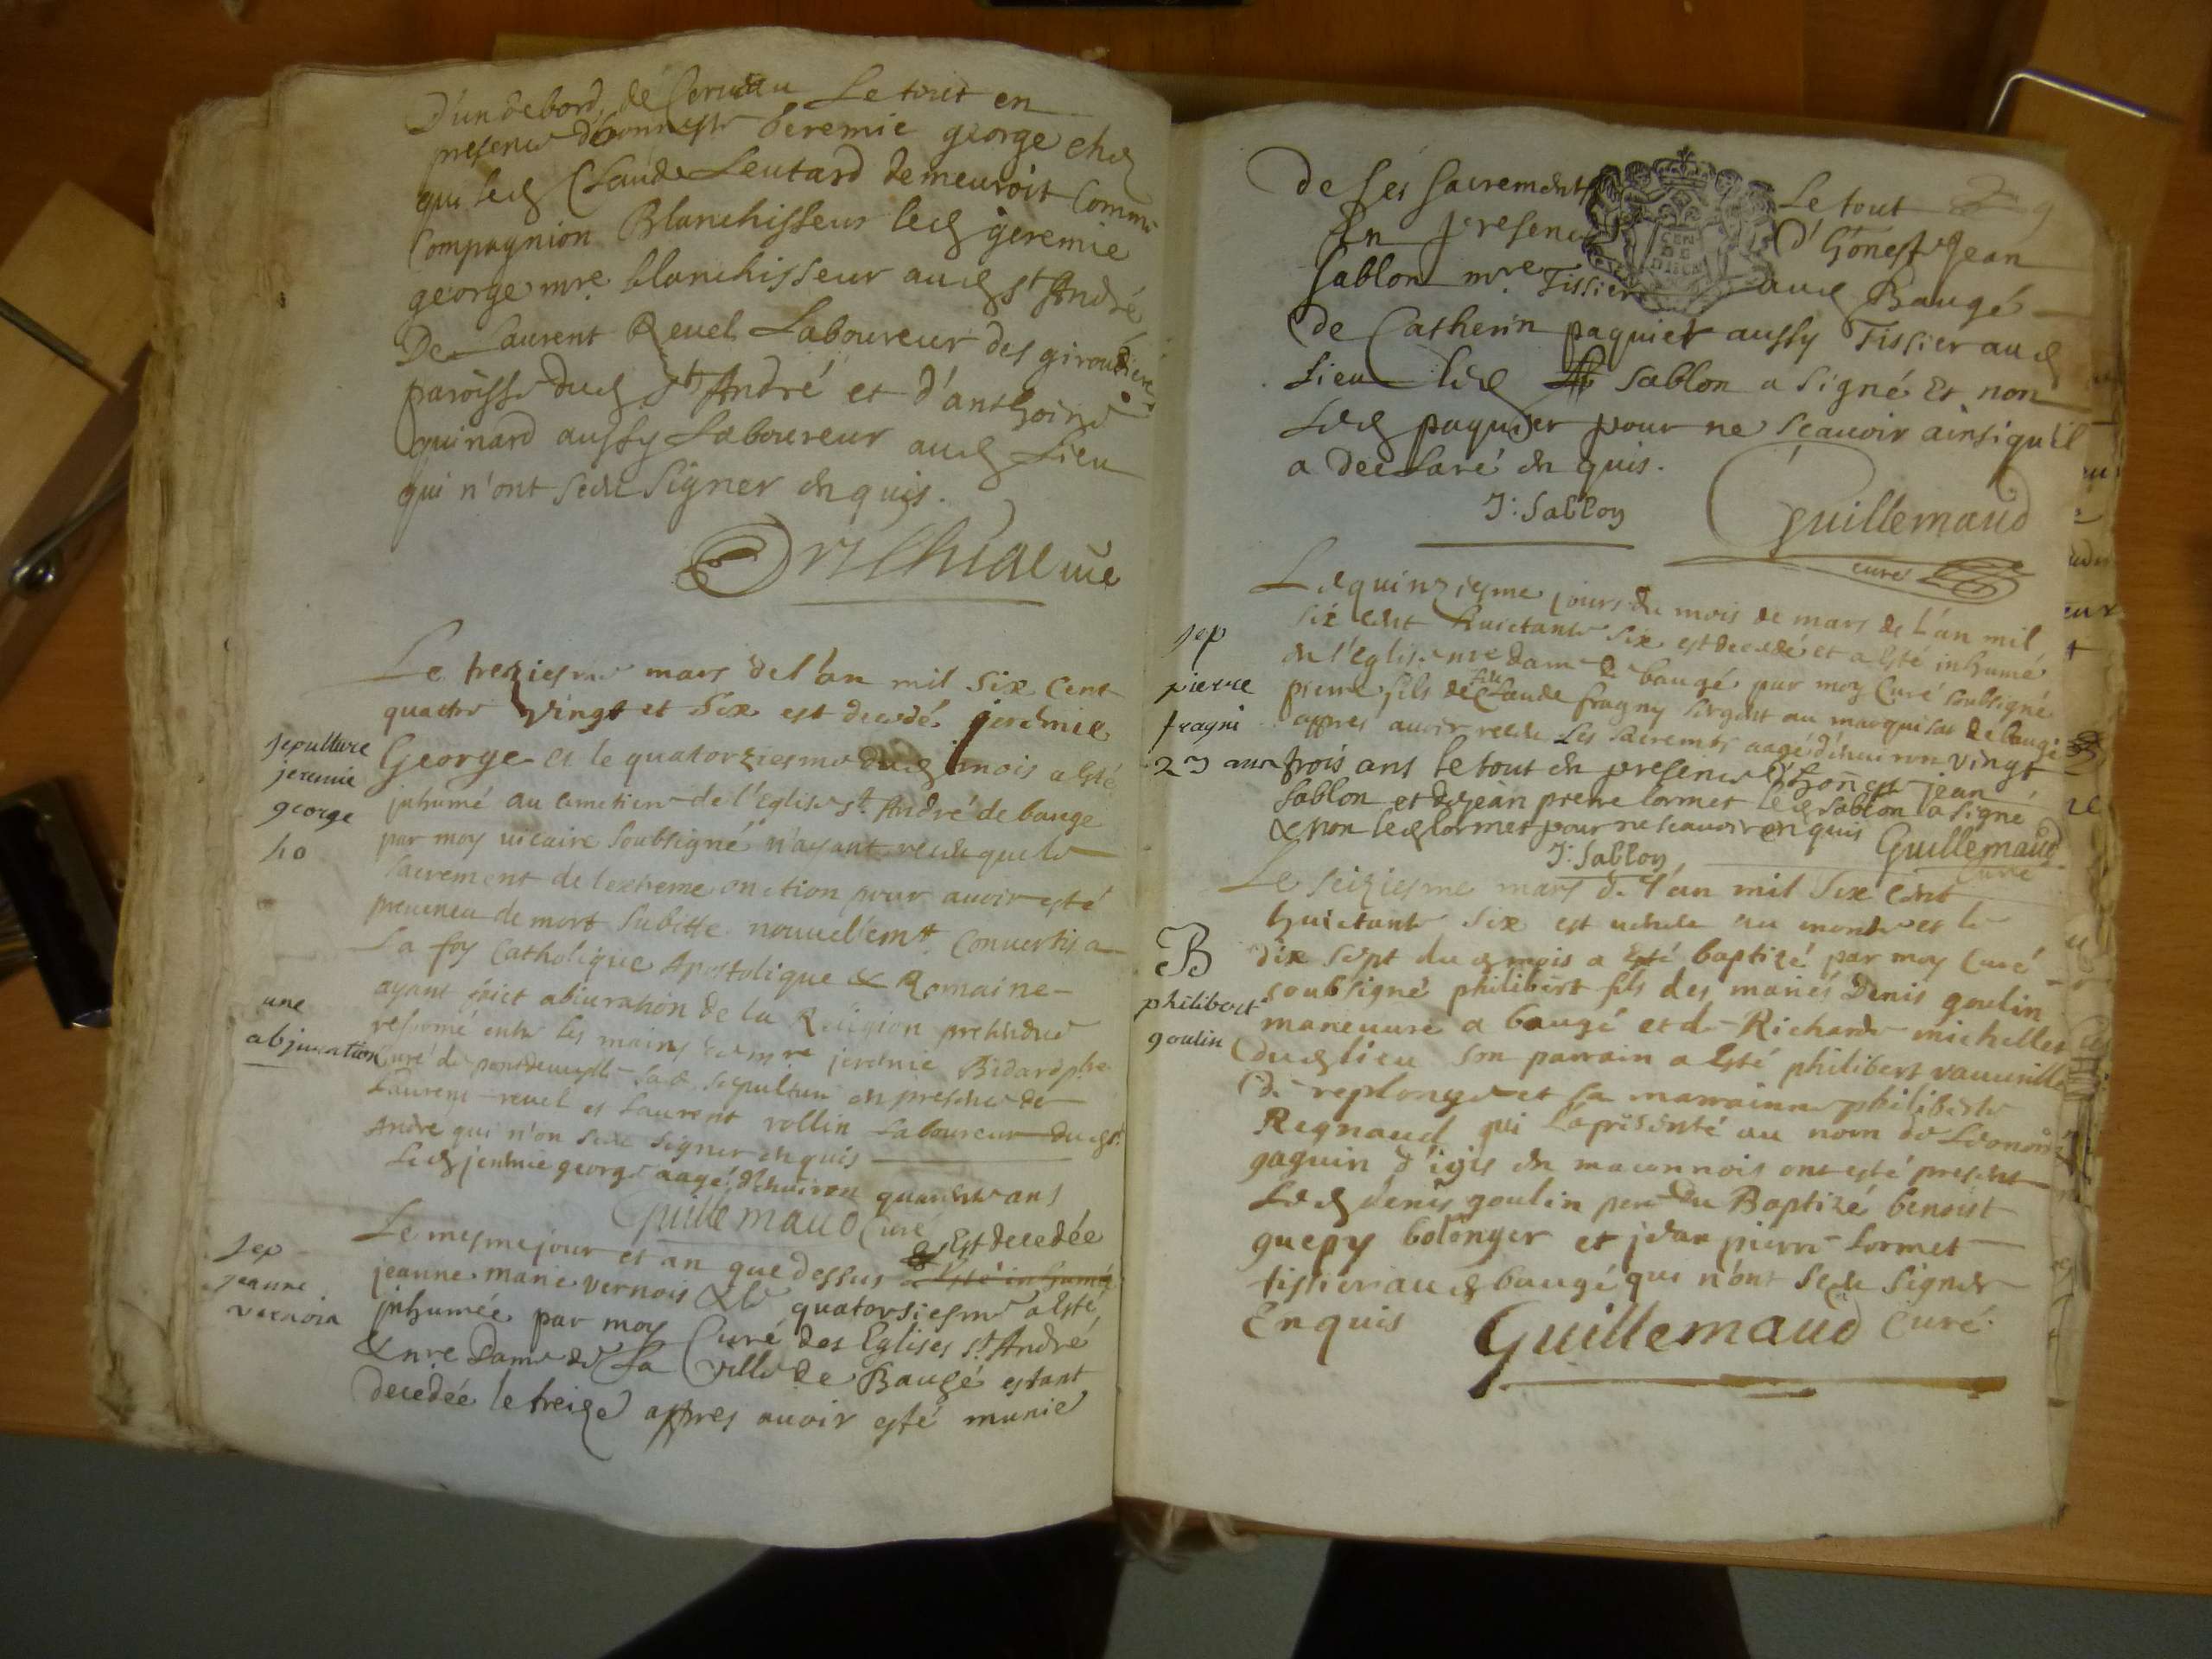 D'un debord de Cerveau Le tout en
presence d'honneste Jeremie george chez
qui led Claude Leutard demeuroit Comme
Compagnion Blanchisseur led jeremie
george mre blanchisseur aud st André
De Laurent Revel Laboureur des giroudieres
paroisse dud st André et d'anthoine
guinard aussy Laboureur aud Lieu
qui n'ont sceu signer enquis.
Le treziesme mars de l'an mil six cent
quattre vingt et six est decedé jeremie
George et le quatorziesme dud mois a esté
inhumé au cimetiere de l'Eglise st André de bauge
par moy vicaire soubsigné n'ayant receu que le
sacrement de lextreme onction pour avoir esté
prevenu de mort subitte nouvellemt Convertis a
La foy Catholique Apostolique & Romaine
ayant faict abiuration de la Religion prettendue
reformé entre les mains de mre jeremie Bidard pbre
Curé de pontdevesle sad sepulture en presence de
Laurent revel et Laurent rollin Laboureur dud st
André qui n'on sceu signer enquis
Led jeremie george aagé d'environ quarente ans
Guillemaud Curé
sepulture
jeremie
george
40
une
abjuration
Le mesme jour et an que dessus Est decedée a esté inhumée
jeanne marie vernois & le quatorsiesme a esté
inhumée par moy Curé des Eglises st André
& nre Dame de La Ville de Baugé estant
decedée le treize appres avoir esté munie
sep
jeanne
vernois
de ses sacrements Le tout
En presence d'honest Jean
Sablon mre Tissier aud Baugé
de Catherin paquier aussy Tissier aud
Lieu led Sablon a signé Et non
Led paquier pour ne scauoir ainsi qu'il
a declaré enquis.
J: Sablon Guillemaud
curé
Le quinziesme jours du mois de mars de L'an mil
six cent huictante six est decedé et a esté inhumé
en l'Eglise nre dame de baugé par moy Curé soubsigné
pierre fils de Claude fragny sergent au marquisat de baugé
appres avoir receu Les sacremts aagé d'environ vingt
trois ans le tout en presence d'honest jean
Sablon et de jean pierre lormet led Sablon a signé
& non led lormet pour ne scauoir enquis
J: Sablon Guillemaud
Curé
sep
pierre
fragni
23 ans
Le seiziesme mars de l'an mil six cent
huictante six est venu au monde et le
dix sept dud mois a esté baptizé par moy Curé
soubsigné philibert fils des mariés Denis goulin
maneuvre a baugé et de Richarde michellet
dud lieu son parrain a esté philibert vauvrille
de replonge et sa marrainne philiberte
Regnaud qui L'a présenté au nom de Leonor
gaguin d'igis en maconnois ont esté present
Led denis goulin pere du Baptizé benoist
guepy bolonger et jean pierre Lormet
tissier aud baugé qui n'ont sceu signer
Enquis Guillemaud Curé.
B
philibert
goulin